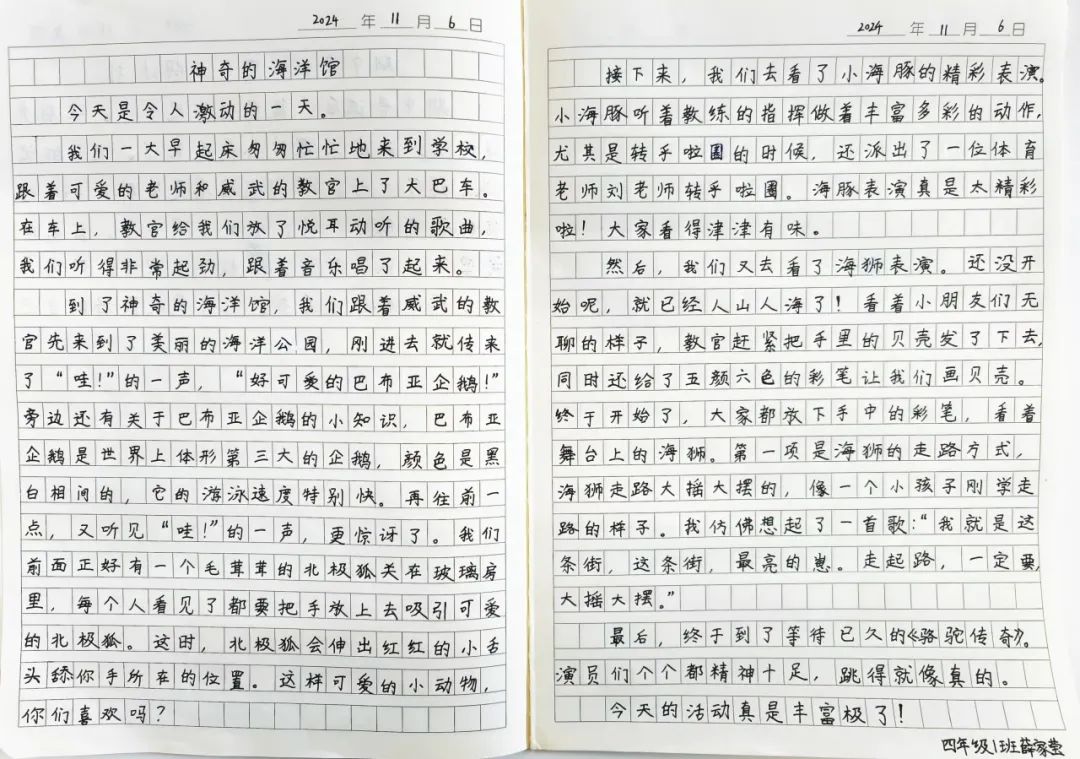 2024 年 11 月 6 日
神奇的海洋馆
今天是令人激动的一天。
我们一大早起床匆匆忙忙地来到学校，
跟着可爱的老师和威武的教官上了大巴车。
在车上，教官给我们放了悦耳动听的歌曲，
我们听得非常起劲，跟着音乐唱了起来。
到了神奇的海洋馆，我们跟着威武的教
官先来到了美丽的海洋公园，刚进去就传来
了“哇！”的一声，“好可爱的巴布亚企鹅！”
旁边还有关于巴布亚企鹅的小知识，巴布亚
企鹅是世界上体形第三大的企鹅，颜色是黑
白相间的，它的游泳速度特别快。再往前一
点，又听见“哇！”的一声，更惊讶了。我们
前面正好有一个毛茸茸的北极狐关在玻璃房
里，每个人看见了都要把手放上去吸引可爱
的北极狐。这时，北极狐会伸出红红的小舌
头舔你手所在的位置。这样可爱的小动物，
你们喜欢吗？
2024 年 11 月 6 日
接下来，我们去看了小海豚的精彩表演。
小海豚听着教练的指挥做着丰富多彩的动作，
尤其是转乎啦圈的时候，还派出了一位体育
老师刘老师转乎啦圈。海豚表演真是太精彩
啦！大家看得津津有味。
然后，我们又去看了海狮表演。还没开
始呢，就已经人山人海了！看着小朋友们无
聊的样子，教官赶紧把手里的贝壳发了下去，
同时还给了五颜六色的彩笔让我们画贝壳。
终于开始了，大家都放下手中的彩笔，看着
舞台上的海狮。第一项是海狮的走路方式，
海狮走路大摇大摆的，像一个小孩子刚学走
路的样子。我仿佛想起了一首歌：“我就是这
条街，这条街，最亮的崽。走起路，一定要，
大摇大摆。”
最后，终于到了等待已久的《骆驼传奇》。
演员们个个都精神十足，跳得就像真的。
今天的活动真是丰富极了！
四年级1班薛家莹